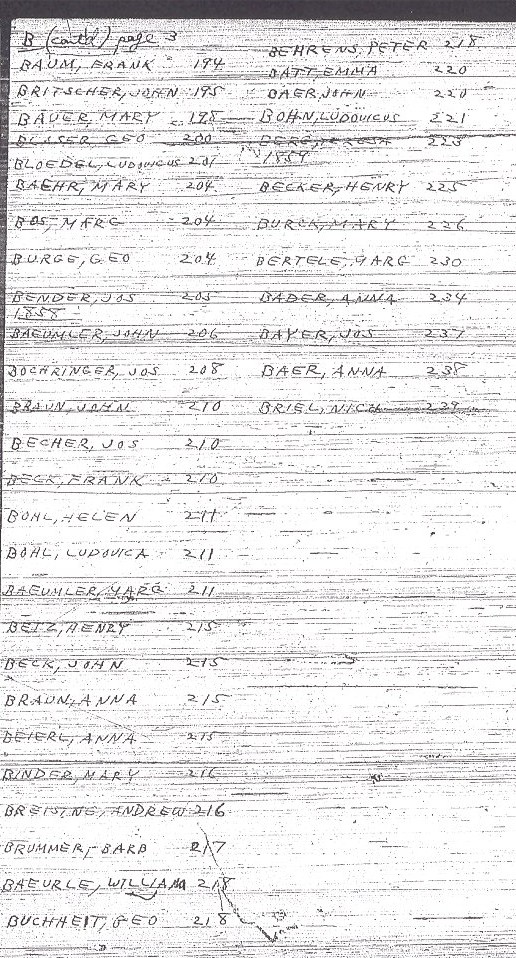 B (contd) page 3
BAUM, FRANK 194
BRITSCHER, JOHN 195
BAUER, MARY 198
GEO 200
BLOEDEL, LUDOVICUS 201
BAEHR, MARY 204
BOS, MARG 204
BURGE, GEO 204
BENDER, JOS 205
1858
BAEUMLER, JOHN 206
BOCHRINGER, JOS 208
BRAUN, JOHN 210
BECHER, JOS 210
BECK, FRANK 210
BOHL, HELEN 211
BOHL, LUDOVICA 211
BAEUMLER, MARG 211
BETZ, HENRY 215
BECK, JOHN 215
BRAUN, ANNA 215
BEIERL, ANNA 215
BINDER, MARY 216
BREISINE, ANDREW 216
BRUMMER, BARB 217
BAEURLE, WILLIAM 218
BUCHHEIT, GEO 218
BEHRENS, PETER 218
BATT, EMMA 220
BAER, JOHN 220
BOHN, LUDOVICUS 221
223
1859
BECKER, HENRY 225
BURCK, MARY 226
BERTELE, MARG 230
BADER, ANNA 234
BAYER, JOS 237
BAER, ANNA 238
BRIEL, NICH 239